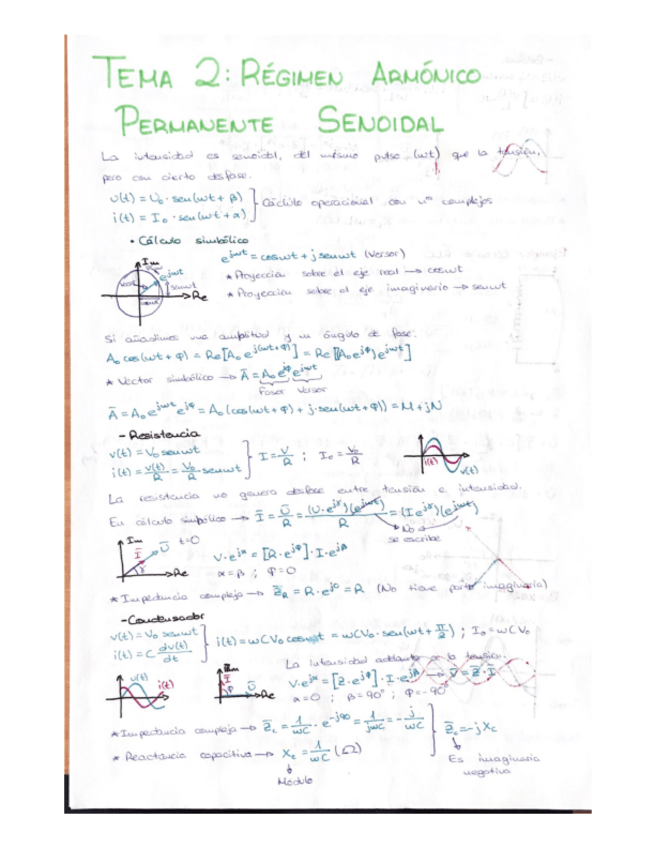 TEMA 2: RÉGIMEN ARMÓNICO
PERMANENTE SENOIDAL
La intensidad es senoidal, del mismo pulso (ωt) que la tensión,
pero con cierto desfase.
υ(t) = U₀ · sen(ωt + β)
i(t) = I₀ · sen(ωt + α) } Cálculo operacional con nᵒˢ complejos
• Cálculo simbólico
Im
e^jωt = cosωt + j senωt (Versor)
e^jωt
* Proyección sobre el eje real → cosωt
senωt
Re
* Proyección sobre el eje imaginario → senωt
Si añadimos una amplitud y un ángulo de fase:
A₀ cos(ωt + φ) = Re[A₀ e^j(ωt+φ)] = Re[(A₀e^jφ) e^jωt]
* Vector simbólico → Ā = A₀e^jφ e^jωt
Fasor Versor
Ā = A₀e^jωt e^jφ = A₀(cos(ωt + φ) + j·sen(ωt + φ)) = M + jN
- Resistencia
v(t) = V₀ senωt
i(t) = v(t)/R = V₀/R · senωt } I = V/R ; I₀ = V₀/R
i(t)
v(t)
La resistencia no genera desfase entre tensión e intensidad.
En cálculo simbólico → Ī = Ū/R = (U·e^jγ)(e^jωt)/R = (I e^jγ)(e^jωt)
No
se escribe
Im t=0
Ī Ū
Re
V·e^jα = [R·e^jφ]·I·e^jβ
α = β ; φ = 0
* Impedancia compleja → Z̄_R = R·e^j0 = R (No tiene parte imaginaria)
- Condensador
v(t) = V₀ senωt
i(t) = C dv(t)/dt } i(t) = ωCV₀ cosωt = ωCV₀ · sen(ωt + π/2) ; I₀ = ωCV₀
La intensidad adelanta a la tensión.
υ(t)
i(t)
Im
Ī
Ū
Re
V·e^jα = [Z·e^jφ]·I·e^jβ → V̄ = Z̄·Ī
α = 0 ; β = 90° ; φ = -90°
* Impedancia compleja → Z̄_c = 1/ωC · e^-j90 = 1/jωC = -j/ωC
* Reactancia capacitiva → X_c = 1/ωC (Ω)
Z̄_c = -j X_c
Módulo
Es imaginaria
negativa